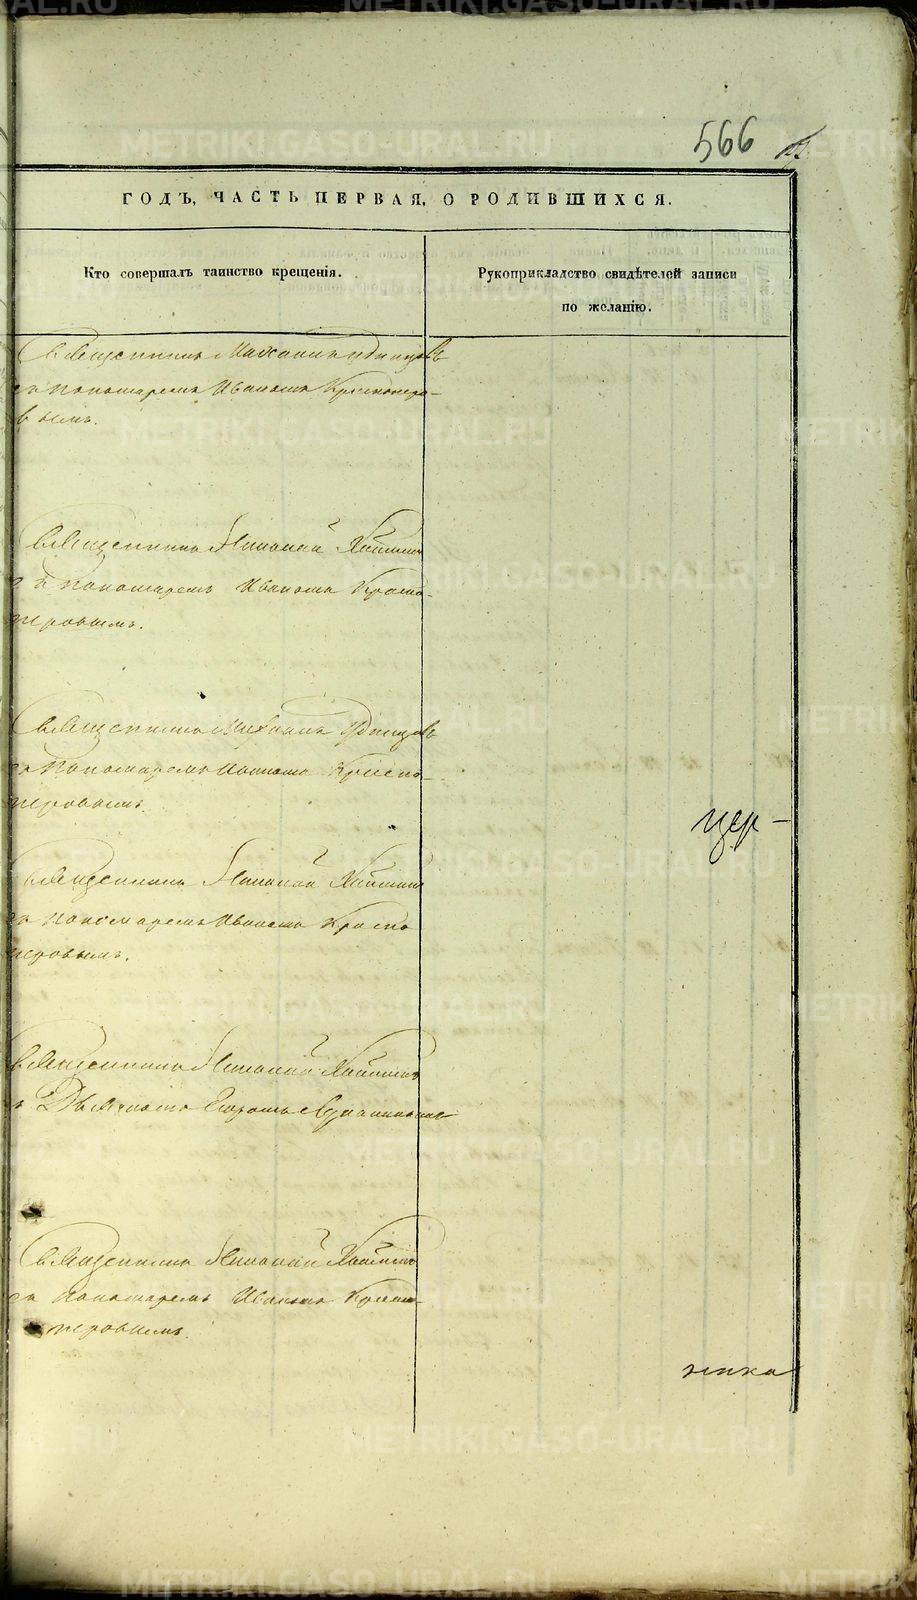 566
ГОДЪ, ЧАСТЬ ПЕРВАЯ, О РОДИВШИХСЯ.
Кто совершалъ таинство крещенія.
Рукоприкладство свидѣтелей записи
по желанію.
Священникъ Михаилъ Удинцовъ
съ пономаремъ Иваномъ Краснопе-
ровымъ.
Священникъ Николай
съ пономаремъ Иваномъ Красно-
перовымъ.
Священникъ Михаилъ Удинцовъ
съ пономаремъ Иваномъ Красно-
перовымъ.
цер-
Священникъ Николай
съ пономаремъ Иваномъ Красно
перовымъ.
Священникъ Николай
съ Дьячкомъ Егоромъ
Священникъ Николай
съ пономаремъ Иваномъ Красно-
перовымъ.
METRIKI.GASO-URAL.RU